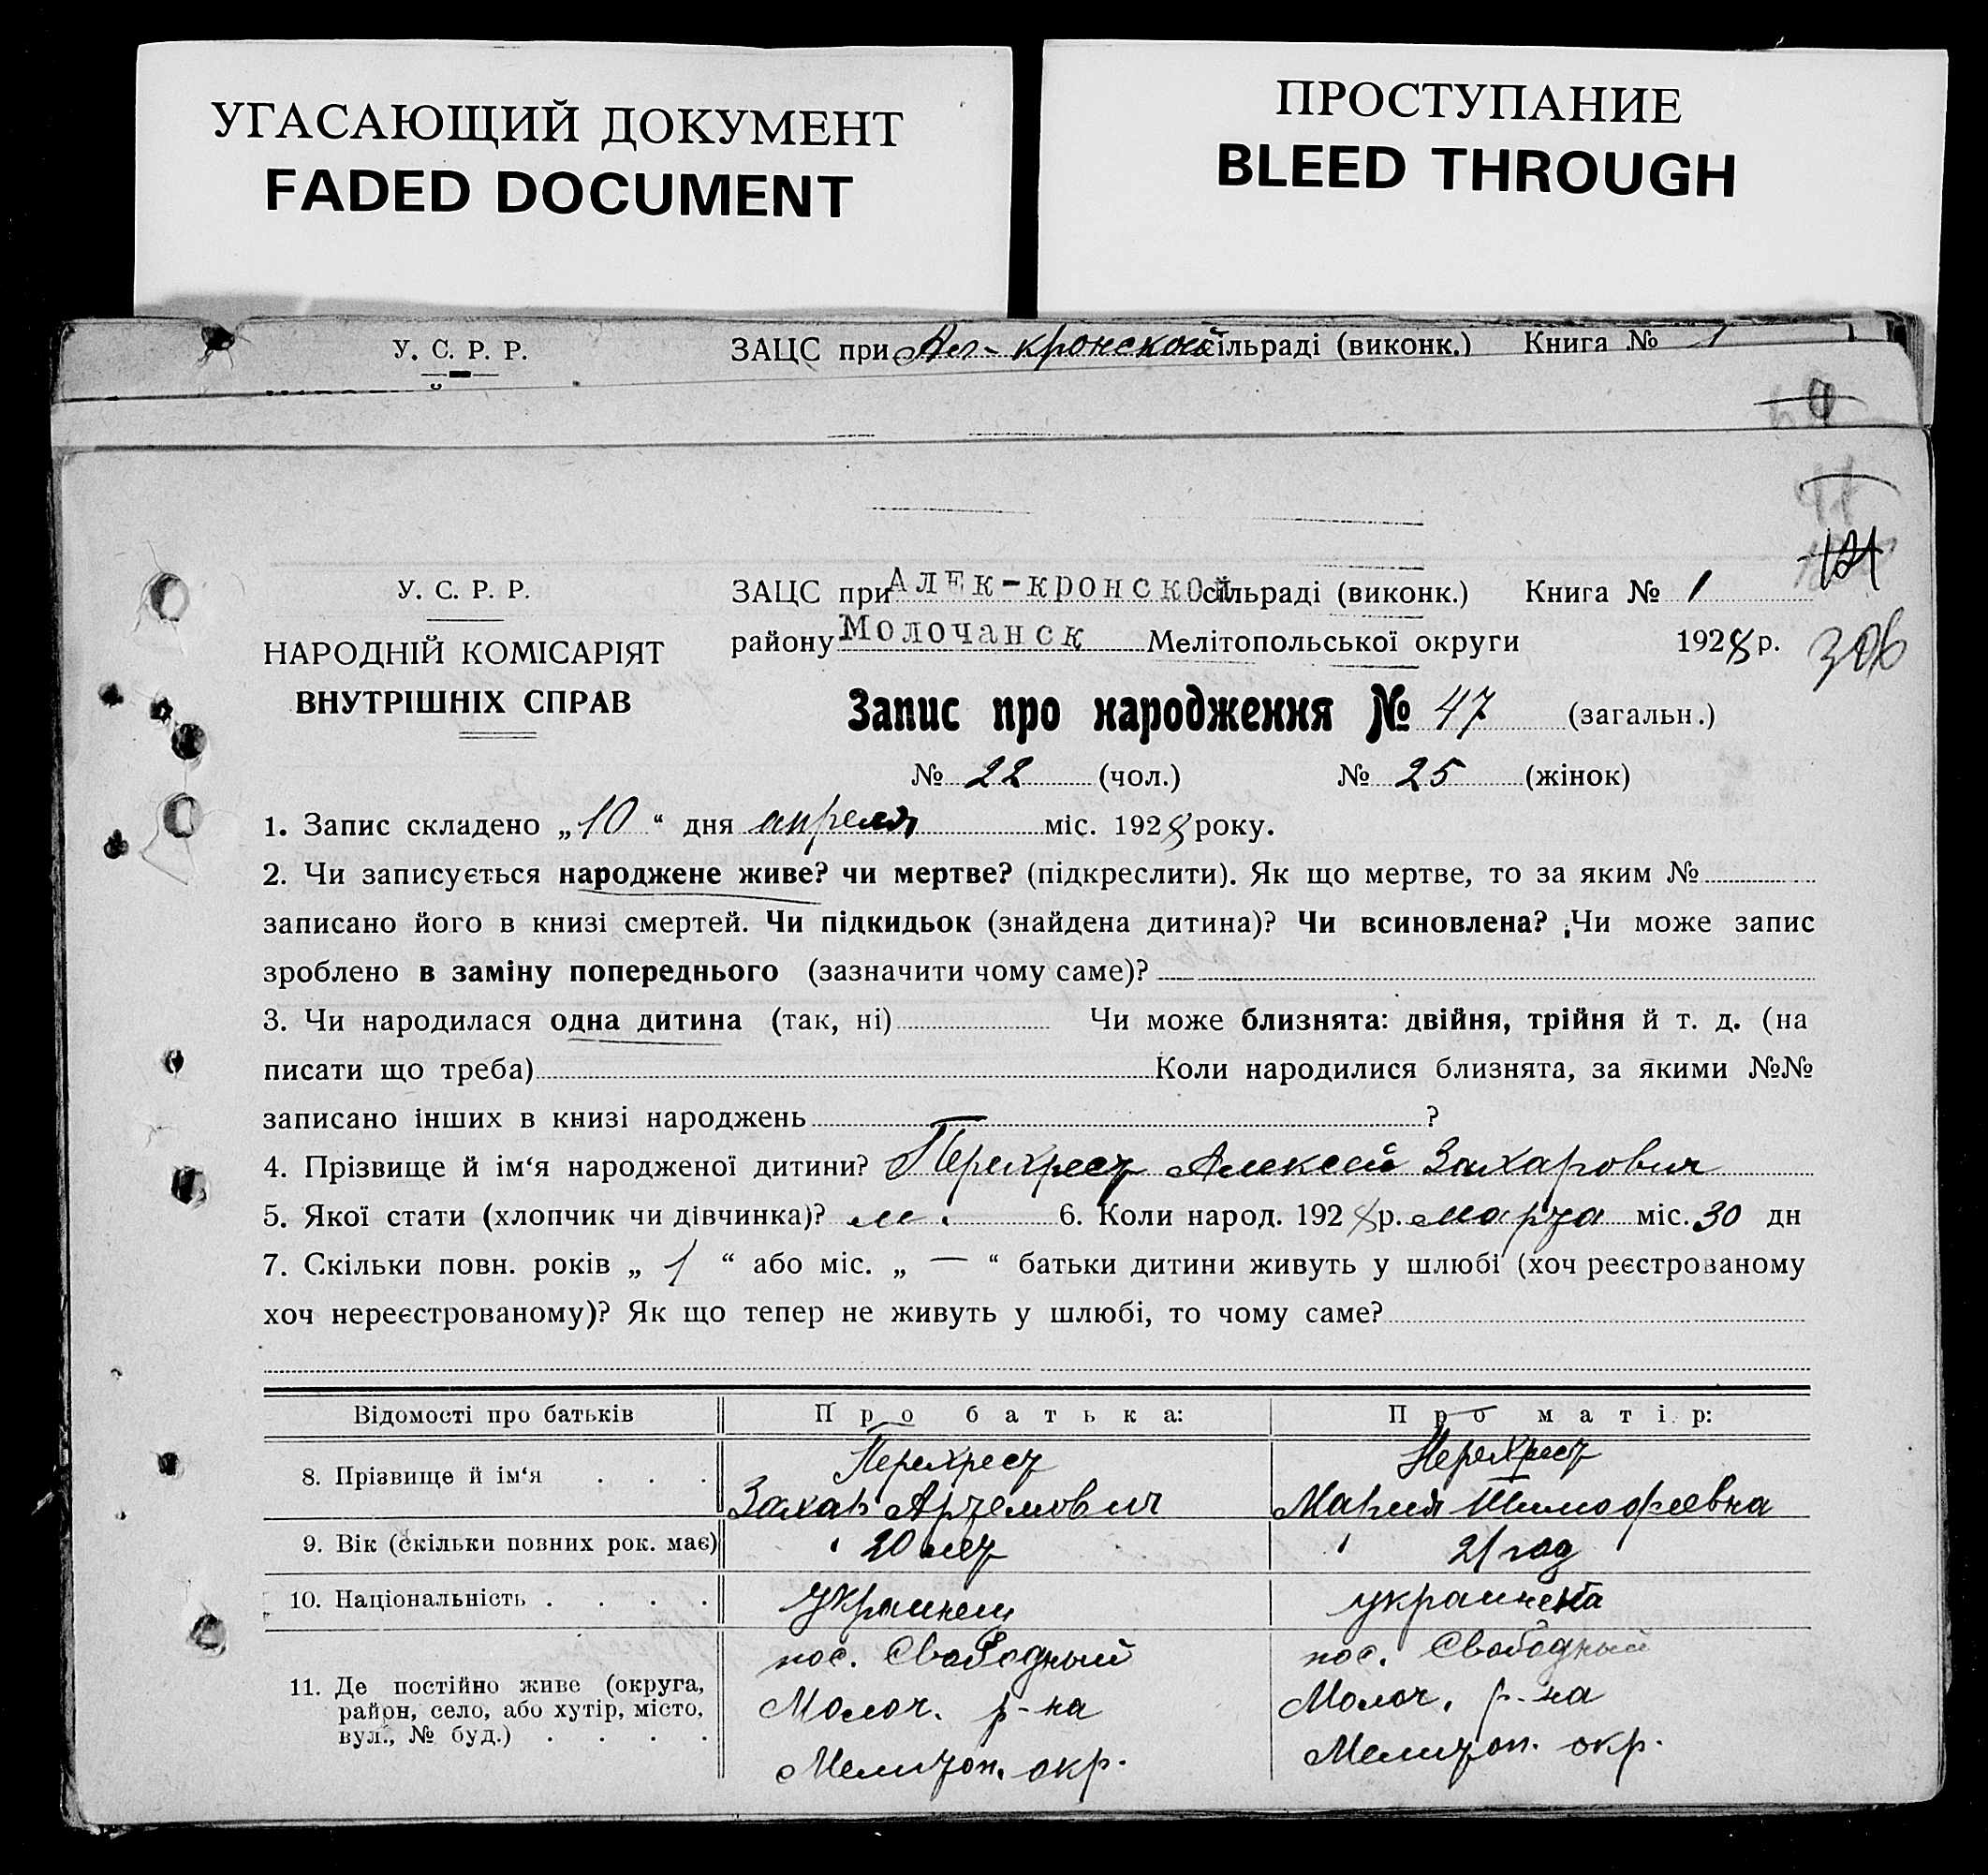 УГАСАЮЩИЙ ДОКУМЕНТ
FADED DOCUMENT
ПРОСТУПАНИЕ
BLEED THROUGH
У. С. Р. Р.
ЗАЦС при Ал-кронской сільраді (виконк.) Книга № 1
У. С. Р. Р.
НАРОДНІЙ КОМІСАРІЯТ
ВНУТРІШНІХ СПРАВ
ЗАЦС при АлЕк-кронской сільраді (виконк.) Книга № 1
району Молочанск Мелітопольської округи 1928 р.
Запис про народження № 47 (загальн.)
№ 22 (чол.) № 25 (жінок)
1. Запис складено „10“ дня апреля міс. 1928 року.
2. Чи записується народжене живе? чи мертве? (підкреслити). Як що мертве, то за яким №
записано його в книзі смертей. Чи підкидьок (знайдена дитина)? Чи всиновлена? Чи може запис
зроблено в заміну попереднього (зазначити чому саме)?
3. Чи народилася одна дитина (так, ні) Чи може близнята: двійня, трійня й т. д. (на
писати що треба) Коли народилися близнята, за якими №№
записано інших в книзі народжень ?
4. Прізвище й ім‘я народженої дитини? Перехрест Алексей Захарович
5. Якої стати (хлопчик чи дівчинка)? м. 6. Коли народ. 1928 р. марта міс. 30 дн
7. Скільки повн. років „ 1 “ або міс. „ — “ батьки дитини живуть у шлюбі (хоч реєстрованому
хоч нереєстрованому)? Як що тепер не живуть у шлюбі, то чому саме?
Відомості про батьків Про батька: Про матір:
8. Прізвище й ім‘я . . . Перехрест Перехрест
Захар Артемович Мария Тимофеевна
9. Вік (скільки повних рок. має) 20 лет 21 год
10. Національність . . . . украинец украинка
11. Де постійно живе (округа, район, село, або хутір, місто, вул., № буд.) . . . .
пос. Свободный пос. Свободный
Молоч. р-на Молоч. р-на
Мелитоп. окр. Мелитоп. окр.